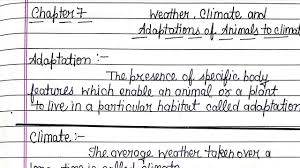 Chapter 7 Weather, Climate and
Adaptations of Animals to climat
Adaptation :-
The presence of specific body
features which enable an animal or a plant
to live in a particular habitat called adaptation
Climate :-
The average weather taken over a
long time is called climate